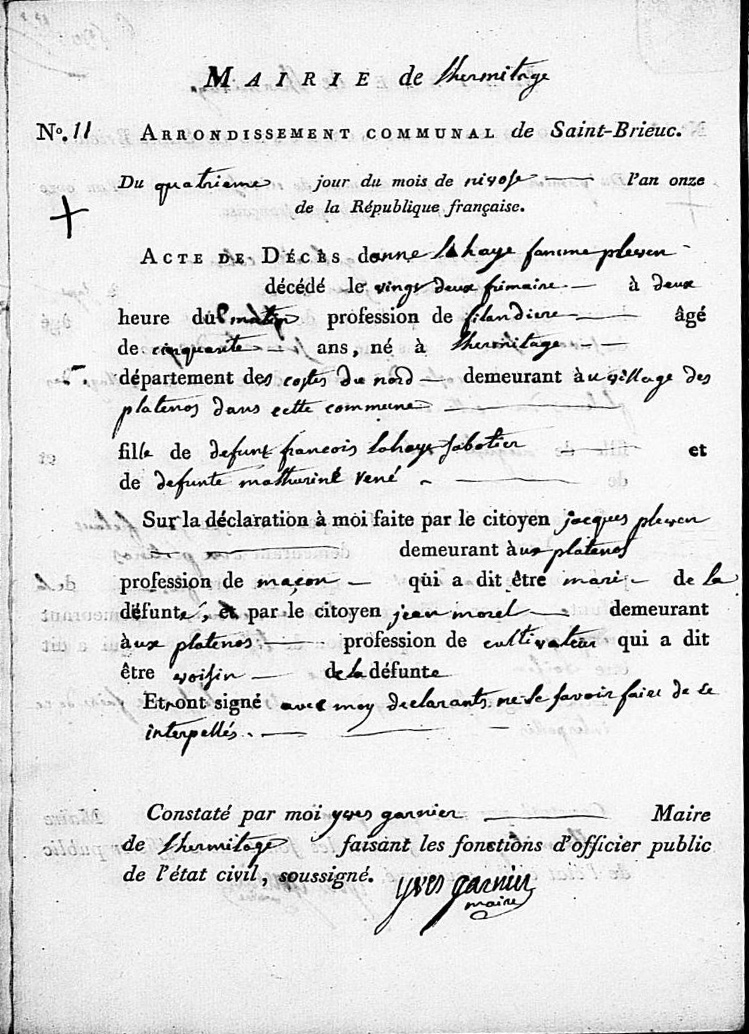 MAIRIE de lhermitage
N°. 11 ARRONDISSEMENT COMMUNAL de Saint-Brieuc.
Du quatrieme jour du mois de nivose l'an onze
de la République française.
ACTE DE DÉCÈS danne lahaye famme plesen
décédé le vingt deux frimaire à deux
heure du matin profession de filandiere âgé
de cinquante ans, né à lhermitage
département des costes du nord demeurant au village des
platenos dans cette commune
fille de defunt francois lahaye sabotier et
de defunte mathurine vené
Sur la déclaration à moi faite par le citoyen jacques plesen
demeurant aux platenos
profession de maçon qui a dit être mari de la
défunte, et par le citoyen jean morel demeurant
aux platenos profession de cultivateur qui a dit
être voisin de la défunte
Et ont signé avec moy declarants ne le savoir faire de ce
interpellés.
Constaté par moi yves garnier Maire
de lhermitage faisant les fonctions d'officier public
de l'état civil, soussigné. yves garnier
maire